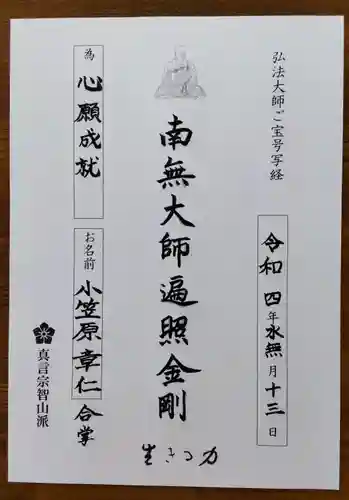 弘法大師ご宝号写経
令和四年水無月十三日
南無大師遍照金剛
為 心願成就
お名前 小笠原章仁 合掌
真言宗智山派
生きる力